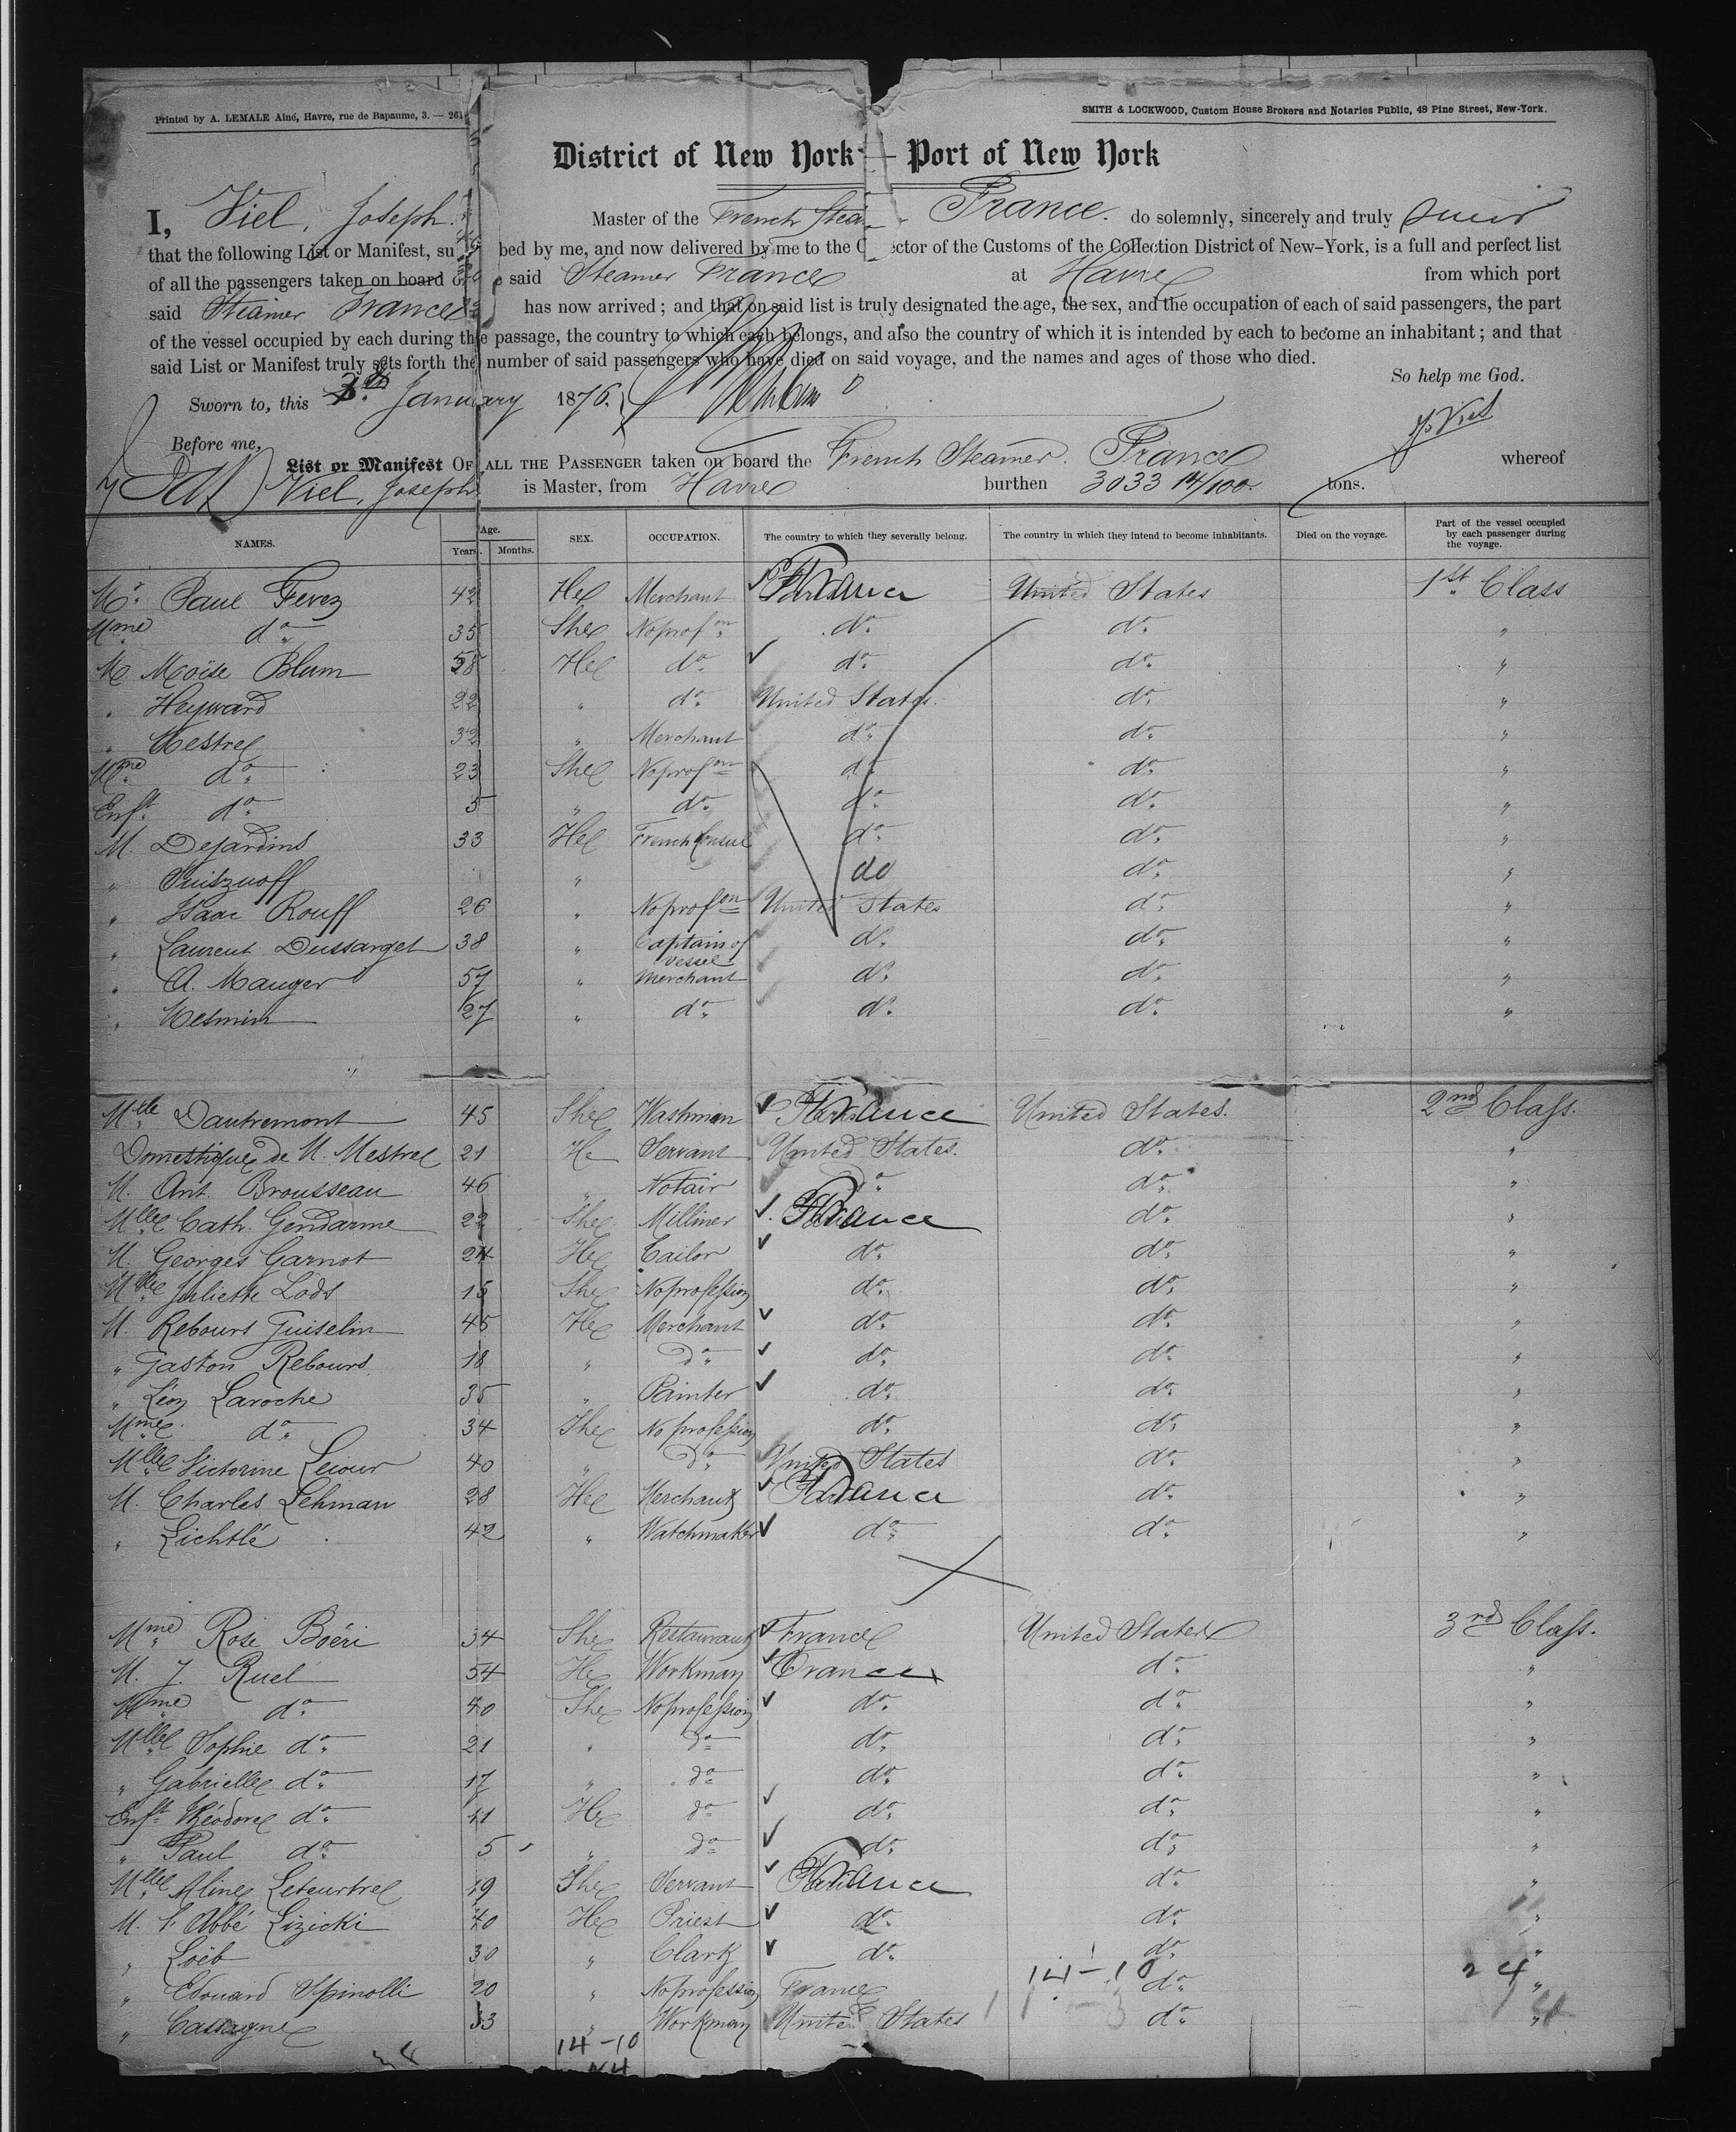 Printed by A. LEMALE Aîné, Havre, rue de Bapaume, 3. — 261
SMITH & LOCKWOOD, Custom House Brokers and Notaries Public, 48 Pine Street, New-York.
District of New York — Port of New York
I, Viel, Joseph. Master of the French Stea France. do solemnly, sincerely and truly
that the following List or Manifest, su bed by me, and now delivered by me to the C ector of the Customs of the Collection District of New-York, is a full and perfect list
of all the passengers taken on board said Steamer France at Havre from which port
said Steamer France has now arrived; and that on said list is truly designated the age, the sex, and the occupation of each of said passengers, the part
of the vessel occupied by each during the passage, the country to which each belongs, and also the country of which it is intended by each to become an inhabitant; and that
said List or Manifest truly sets forth the number of said passengers who have died on said voyage, and the names and ages of those who died.
So help me God.
Sworn to, this January 1876.
Before me,
List or Manifest OF ALL THE PASSENGER taken on board the French Steamer France whereof
Viel, Joseph is Master, from Havre burthen 3033 14/100. tons.
NAMES. Age. Years. Months. SEX. OCCUPATION. The country to which they severally belong. The country in which they intend to become inhabitants. Died on the voyage. Part of the vessel occupied by each passenger during the voyage.
Mr. Paul Fevez 42 He Merchant France United States 1st Class
Mme do 35 She No profon do do "
M Moïse Blum 58 He do do do "
" Heyward 22 " do United States do "
" Mestre 32 " Merchant do do "
Mme do 23 She No profon do do "
Enft. do 5 " do do do "
M. Dejardins 33 He French Consul do do "
" " do do "
" Isaac Rouff 26 " No profon United States do "
" Laurent Dussarget 38 " Captain of vessel do do "
" A. Mauger 57 " Merchant do do "
" Mesmin 27 " do do do "
Mlle Dautremont 45 She France United States. 2nd Class.
Domestique de M. Mestre 21 He Servant United States. do "
M. Ant. Brousseau 46 " Notair do do "
Mlle Cath. Gendarme 22 She Milliner France do "
M. Georges Garnot 24 He Tailor do do "
Mlle Juliette Lods 15 She No profession do do "
M. Rebours Guiselin 45 He Merchant do do "
" Gaston Rebours 18 " do do do "
" Léon Laroche 35 " Painter do do "
Mme do 34 She No profession do do "
Mlle Victorine Lecour 40 " do United States do "
M. Charles Lehman 28 He Merchant France do "
" Lichtlé 42 " Watchmaker do do "
Mme Rose Boéri 34 She Restaurant France United States 3rd Class.
M. J. Ruel 54 He Workman France do "
Mme do 40 She No profession do do "
Mlle Sophie do 21 " do do do "
" Gabrielle do 17 " do do do "
Enft Théodore do 11 He do do do "
" Paul do 5 " do do do "
Mlle Aline Leteurtre 19 She Servant France do "
M. l'Abbé Lizicki 40 He Priest do do "
" Loëb 30 " Clark do do "
" Edouard Spinolli 20 " No profession France 14-10 do 24 "
" Cassagne 33 " Workman United States do "
14-10